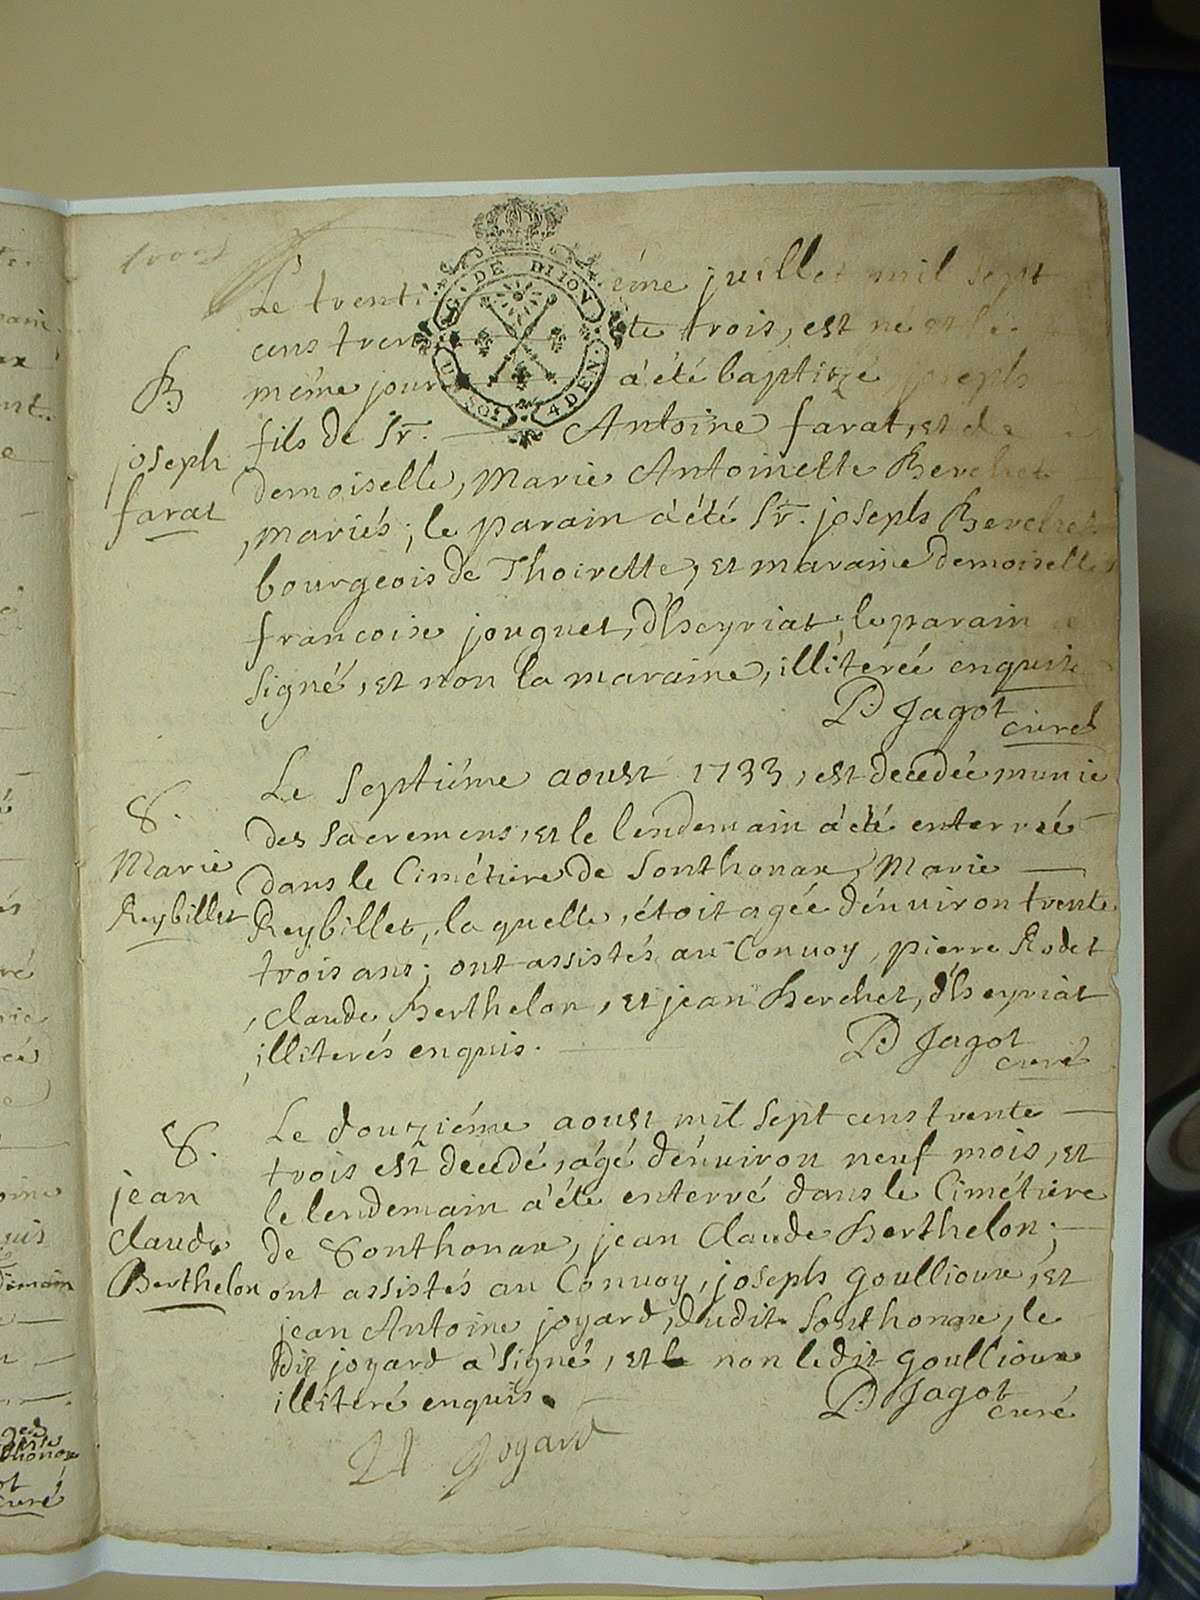 trois
G. DE DIJON
U. SOL 4 DEN.
Le trenti éme juillet mil sept
cens tren te trois, est né et le
B
même jour à été baptizé joseph
fils de Sr. Antoine farat, et de
joseph
farat
demoiselle, Marie Antoinette Berchet
mariés; le parain à été Sr. joseph Berchet
bourgeois de Thoirette, et maraine demoiselle
francoise jouguet, d'heyriat, le parain
signé, et non la maraine, illiterée enquise
D Jagot
curé
Le septiéme aoust 1733, est decedée munie
S.
des sacremens, et le lendemain à été enterrée
Marie
dans le Cimétiere de Sonthonax, Marie
Reybillet
Reybillet, la quelle, étoit agée d'énuiron trente
trois ans; ont assistés au Conuoy, pierre Rodet
, claude Berthelon, et jean Berchet, d'heyriat
illiterés enquis.
D Jagot
curé
Le douziéme aoust mil sept cens trente
S.
trois est decedé, agé d'énuiron neuf mois, et
jean
le lendemain à été enterré dans le Cimétiere
claude
de Sonthonax, jean Claude Berthelon;
Berthelon
ont assistés au Conuoy, joseph goullioux, et
jean Antoine joyard, dudit Sonthonax, le
dit joyard a signé, et non ledit goullioux
illiteré enquis.
D Jagot
curé
Joyard